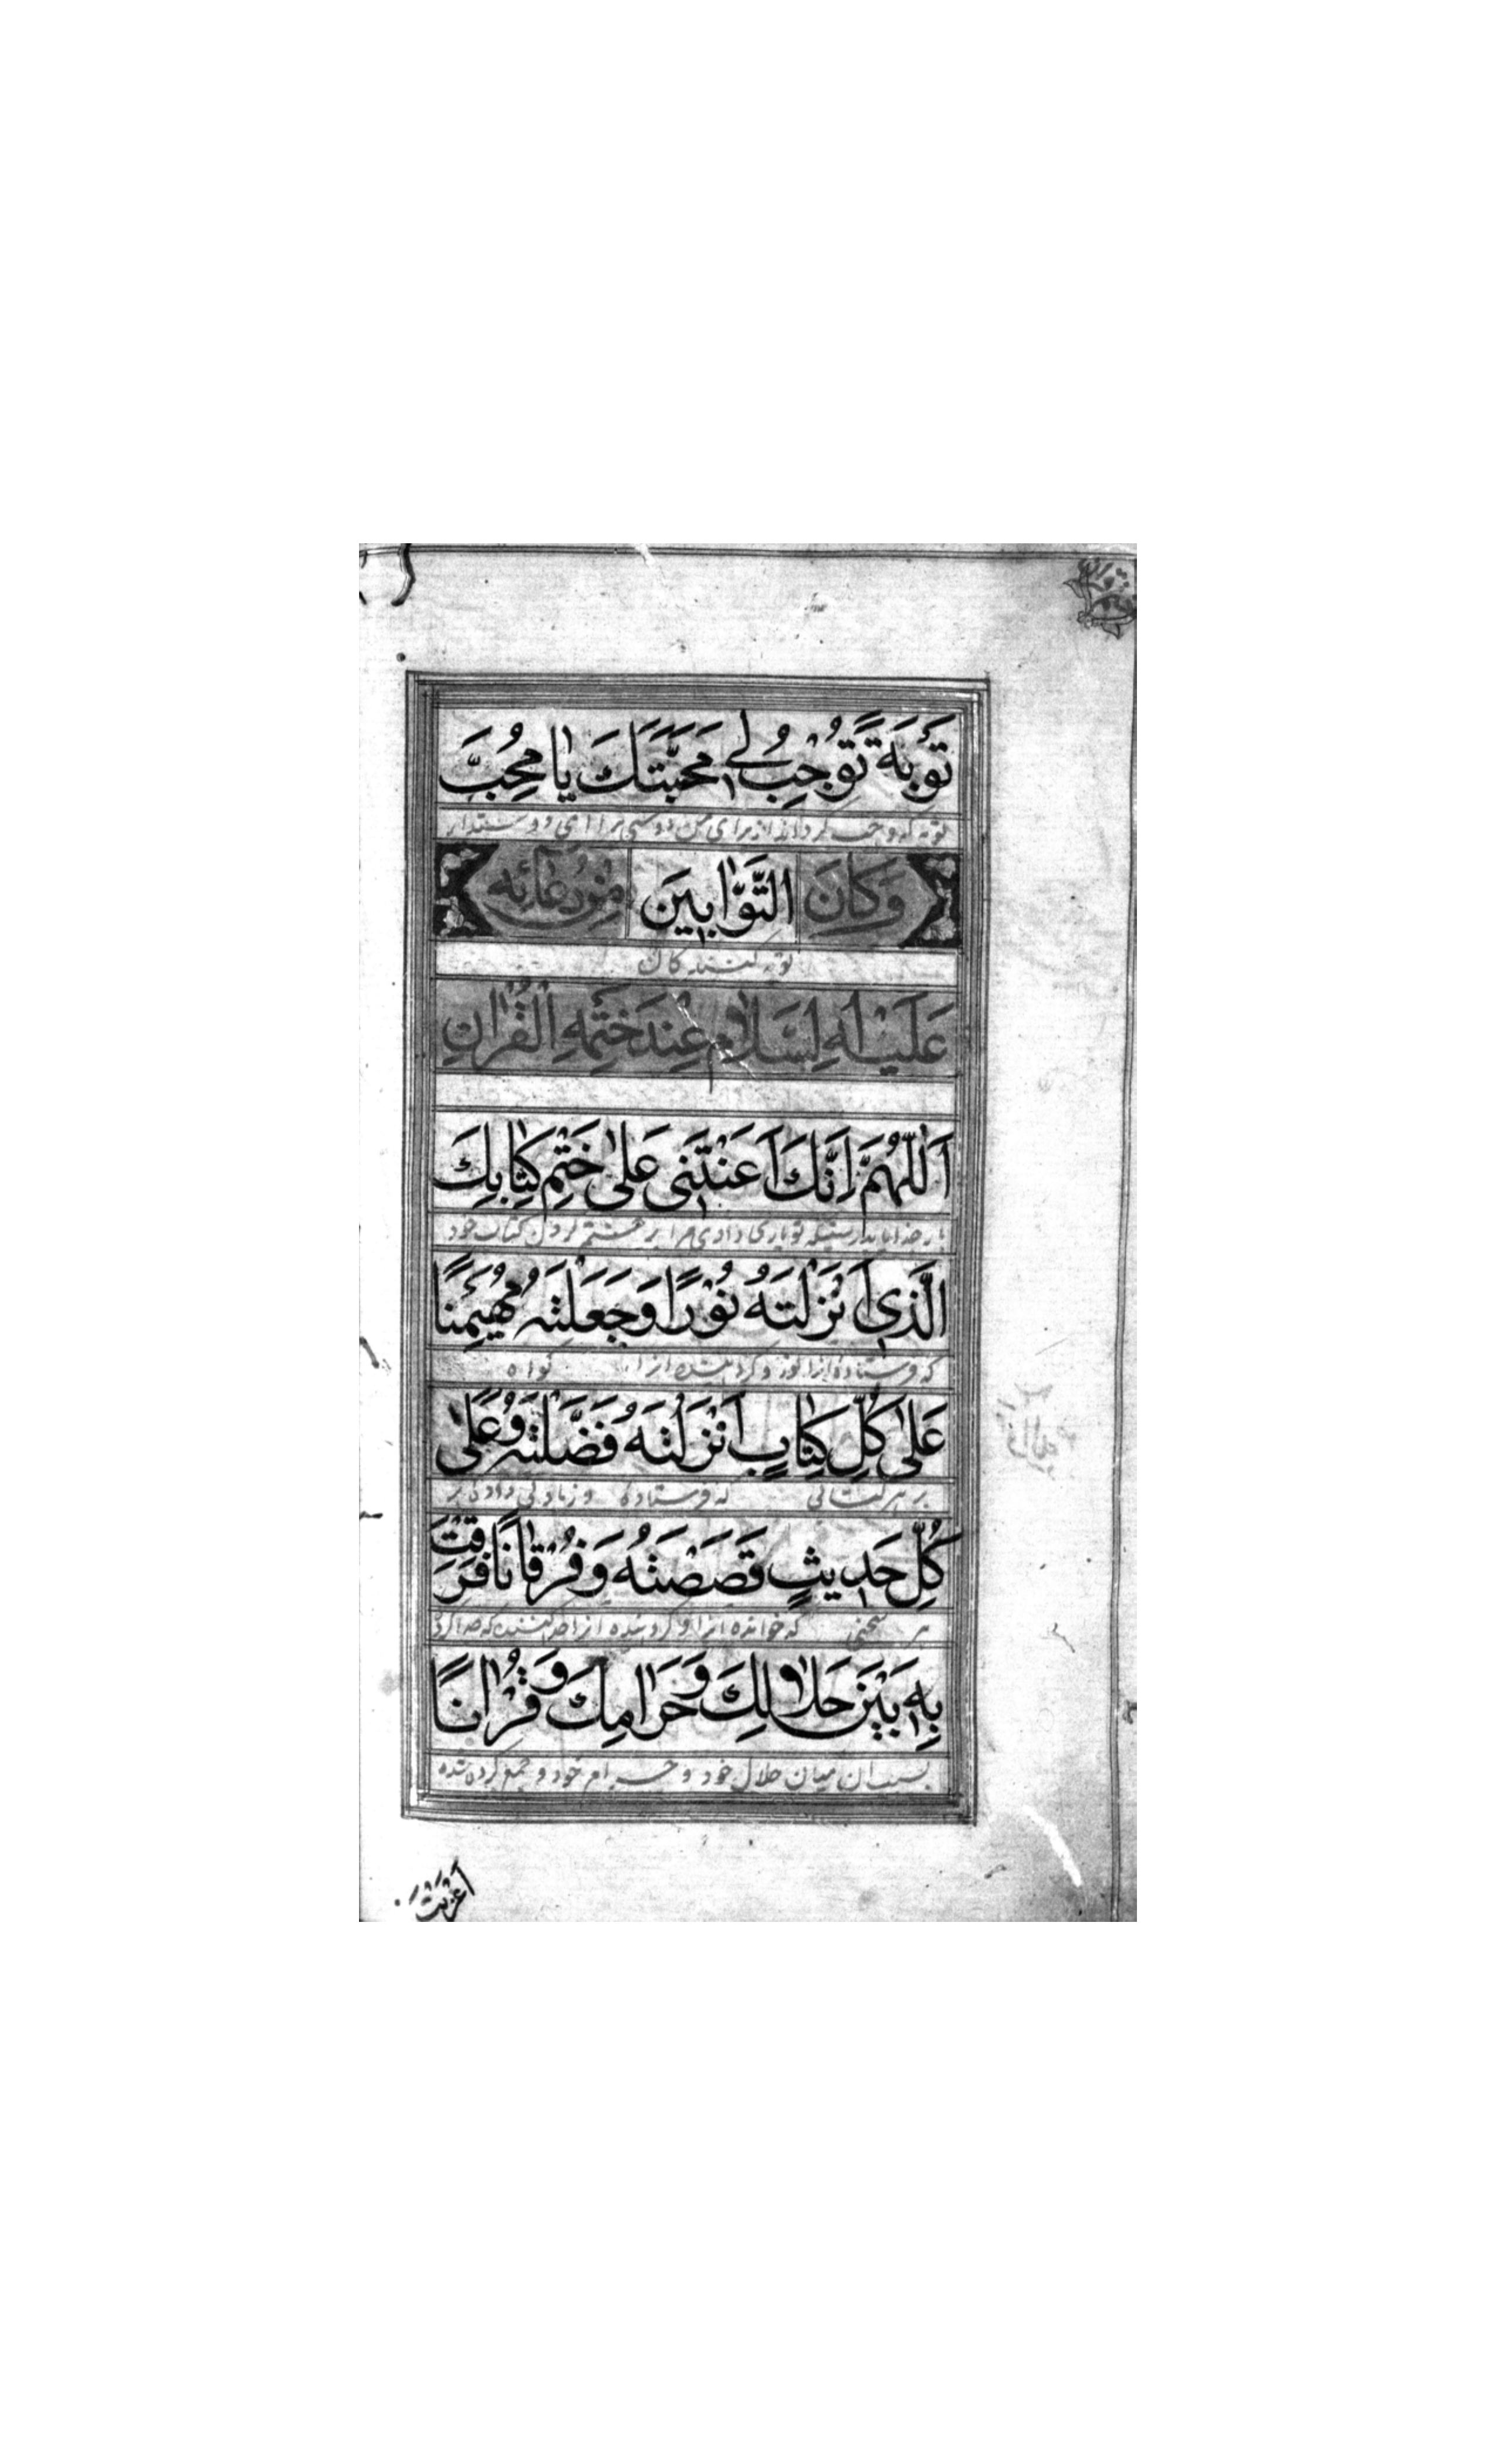 تَوْبَةً تُوجِبُ لِي مَحَبَّتَكَ يٰا مُحِبَّ
توبه که واجب گرداند از برای من دوستی ترا ای دوستدار
وَكَانَ التَّوّٰابِينَ مِنْ دُعَائِهِ
توبه کنندگان
عَلَيْهِ السَّلَامُ عِنْدَ خَتْمِهِ الْقُرْاٰنِ
اَللّٰهُمَّ اِنَّكَ اَعَنْتَنِي عَلىٰ خَتْمِ كِتٰابِكَ
بار خدایا بدرستیکه تو یاری دادی مرا بر ختم کردن کتاب خود
الَّذِي اَنْزَلْتَهُ نُوْرًا وَجَعَلْتَهُ مُهَيْمِنًا
که فرستاده آنرا نور و گردانیده آنرا گواه
عَلىٰ كُلِّ كِتٰابٍ اَنْزَلْتَهُ وَفَضَّلْتَهُ عَلىٰ
بر هر کتابی که فرستاده و زیادتی دادی بر
كُلِّ حَدِيثٍ قَصَصْتَهُ وَفُرْقٰانًا فَرَقْتَ
هر سخنی که خوانده آنرا و گردانیده آنرا جدا کننده که جدا کردی
بِهِ بَيْنَ حَلٰالِكَ وَحَرٰامِكَ وَقُرْاٰنًا
بسبب آن میان حلال خود و حرام خود و جمع کرده شده
اَعْرَبْتَ